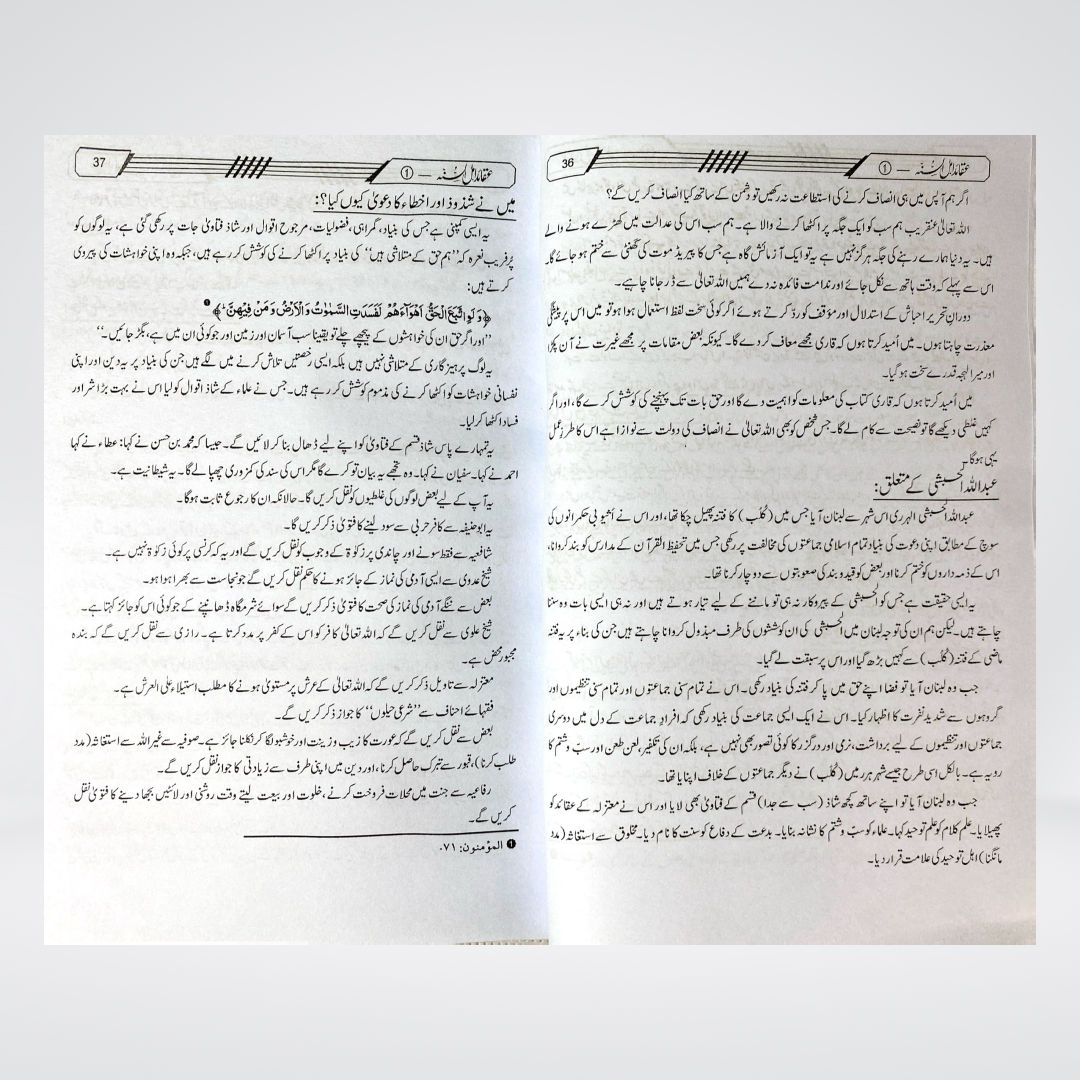 عقائد اہل السنہ — ① 36
اگر ہم آپس میں ہی انصاف کرنے کی استطاعت نہ رکھیں تو دشمن کے ساتھ کیا انصاف کریں گے؟
اللہ تعالیٰ عنقریب ہم سب کو ایک جگہ پر اکٹھا کرنے والا ہے۔ ہم سب اس کی عدالت میں کھڑے ہونے والے
ہیں۔ یہ دنیا ہمارے رہنے کی جگہ ہرگز نہیں ہے یہ تو ایک آزمائش گاہ ہے جس کا پیریڈ موت کی گھنٹی سے ختم ہو جائے گا،
اس سے پہلے کہ وقت ہاتھ سے نکل جائے اور ندامت فائدہ نہ دے ہمیں اللہ تعالیٰ سے ڈر جانا چاہیے۔
دورانِ تحریر احباش کے استدلال اور مؤقف کو ردّ کرتے ہوئے اگر کوئی سخت لفظ استعمال ہوا ہو تو میں اس پر پیشگی
معذرت چاہتا ہوں۔ میں اُمید کرتا ہوں کہ قاری مجھے معاف کر دے گا۔ کیونکہ بعض مقامات پر مجھے غیرت نے آن پکڑا
اور میرا لہجہ قدرے سخت ہو گیا۔
میں اُمید کرتا ہوں کہ قاری کتاب کی معلومات کو اہمیت دے گا اور حق بات تک پہنچنے کی کوشش کرے گا، اور اگر
کہیں غلطی دیکھے گا تو نصیحت سے کام لے گا۔ جس شخص کو بھی اللہ تعالیٰ نے انصاف کی دولت سے نوازا ہے اس کا طرزِ عمل
یہی ہوگا۔
عبداللہ الحبشی کے متعلق:
عبداللہ الحبشی الہرری اس شہر سے لبنان آیا جس میں (کُلُب) کا فتنہ پھیل چکا تھا، اور اس نے ایتھوپی حکمرانوں کی
سوچ کے مطابق اپنی دعوت کی بنیاد تمام اسلامی جماعتوں کی مخالفت پر رکھی جس میں تحفیظ القرآن کے مدارس کو بند کروانا،
اس کے ذمہ داروں کو ختم کرنا اور بعض کو قید و بند کی صعوبتوں سے دوچار کرنا تھا۔
یہ ایسی حقیقت ہے جس کو الحبشی کے پیروکار نہ ہی تو ماننے کے لیے تیار ہوتے ہیں اور نہ ہی ایسی بات وہ سننا
چاہتے ہیں۔ لیکن ہم ان کی توجہ لبنان میں الحبشی کی ان کوششوں کی طرف مبذول کروانا چاہتے ہیں جن کی بناء پر یہ فتنہ
ماضی کے فتنہ (کُلُب) سے کہیں بڑھ گیا اور اس پر سبقت لے گیا۔
جب وہ لبنان آیا تو فضا اپنے حق میں پا کر فتنہ کی بنیاد رکھی۔ اس نے تمام سنی جماعتوں اور تمام سنی تنظیموں اور
گروہوں سے شدید نفرت کا اظہار کیا۔ اس نے ایک ایسی جماعت کی بنیاد رکھی کہ افرادِ جماعت کے دل میں دوسری
جماعتوں اور تنظیموں کے لیے برداشت، نرمی اور درگزر کا کوئی تصور بھی نہیں ہے، بلکہ ان کی تکفیر، لعن طعن اور سبّ و شتم کا
رویہ ہے۔ بالکل اسی طرح جیسے شہر ہرر میں (کُلُب) نے دیگر جماعتوں کے خلاف اپنایا تھا۔
جب وہ لبنان آیا تو اپنے ساتھ کچھ شاذ (سب سے جدا) قسم کے فتاویٰ بھی لایا اور اس نے معتزلہ کے عقائد کو
پھیلایا۔ علم کلام کو علم توحید کہا۔ علماء کو سبّ و شتم کا نشانہ بنایا۔ بدعت کے دفاع کو سنت کا نام دیا۔ مخلوق سے استغاثہ (مدد
مانگنا) اہل توحید کی علامت قرار دیا۔
عقائد اہل السنہ — ① 37
میں نے شذوذ اور اخطاء کا دعویٰ کیوں کیا؟:
یہ ایسی کمپنی ہے جس کی بنیاد، گمراہی، فضولیات، مرجوح اقوال اور شاذ فتاویٰ جات پر رکھی گئی ہے، یہ لوگوں کو
پُرفریب نعرہ کہ ’’ہم حق کے متلاشی ہیں‘‘ کی بنیاد پر اکٹھا کرنے کی کوشش کر رہے ہیں، جبکہ وہ اپنی خواہشات کی پیروی
کرتے ہیں:
﴿وَلَوِ اتَّبَعَ الْحَقُّ اَهْوَآءَهُمْ لَفَسَدَتِ السَّمٰوٰتُ وَالْاَرْضُ وَمَنْ فِيْهِنَّ﴾ ❶
’’اور اگر حق ان کی خواہشوں کے پیچھے چلے تو یقینا سب آسمان اور زمین اور جو کوئی ان میں ہے، بگڑ جائیں۔‘‘
یہ لوگ پرہیزگاری کے متلاشی نہیں ہیں بلکہ ایسی رخصتیں تلاش کرنے میں لگے ہیں جن کی بنیاد پر یہ دین اور اپنی
نفسانی خواہشات کو اکٹھا کرنے کی مذموم کوشش کر رہے ہیں۔ جس نے علماء کے شاذ اقوال کو لیا اس نے بہت بڑا شر اور
فساد اکٹھا کر لیا۔
یہ تمہارے پاس شاذ قسم کے فتاویٰ کو اپنے لیے ڈھال بنا کر لائیں گے۔ جیسا کہ محمد بن حسن نے کہا: عطاء نے کہا
احمد نے کہا۔ سفیان نے کہا۔ وہ تجھے یہ بیان تو کرے گا مگر اس کی سند کی کمزوری چھپا لے گا۔ یہ شیطانیت ہے۔
یہ آپ کے لیے بعض لوگوں کی غلطیوں کو نقل کریں گا۔ حالانکہ ان کا رجوع ثابت ہوگا۔
یہ ابوحنیفہ سے کافر حربی سے سود لینے کا فتویٰ ذکر کریں گا۔
شافعیہ سے فقط سونے اور چاندی پر زکوٰۃ کے وجوب کو نقل کریں گے اور یہ کہ کرنسی پر کوئی زکوٰۃ نہیں ہے۔
شیخ عدوی سے ایسی آدمی کی نماز کے جائز ہونے کا حکم نقل کریں گے جو نجاست سے بھرا ہوا ہو۔
بعض سے ننگے آدمی کی نماز کی صحت کا فتویٰ ذکر کریں گے سوائے شرمگاہ ڈھانپنے کے جو کوئی اس کو جائز کہتا ہے۔
شیخ علوی سے نقل کریں گے کہ اللہ تعالیٰ کافر کو اس کے کفر پر مدد کرتا ہے۔ رازی سے نقل کریں گے کہ بندہ
مجبور محض ہے۔
معتزلہ سے تاویل ذکر کریں گے کہ اللہ تعالیٰ کے عرش پر مستوی ہونے کا مطلب استیلاء علی العرش ہے۔
فقہائے احناف سے ’’شرعی حیلوں‘‘ کا جواز ذکر کریں گے۔
بعض سے نقل کریں گے کہ عورت کا زیب و زینت اور خوشبو لگا کر نکلنا جائز ہے۔ صوفیہ سے غیر اللہ سے استغاثہ (مدد
طلب کرنا)، قبور سے تبرک حاصل کرنا، اور دین میں اپنی طرف سے زیادتی کا جواز نقل کریں گے۔
رفاعیہ سے جنت میں محلات فروخت کرنے، خلوت اور بیعت لیتے وقت روشنی اور لائٹیں بجھا دینے کا فتویٰ نقل
کریں گے۔
❶ المؤمنون: ۷۱۔